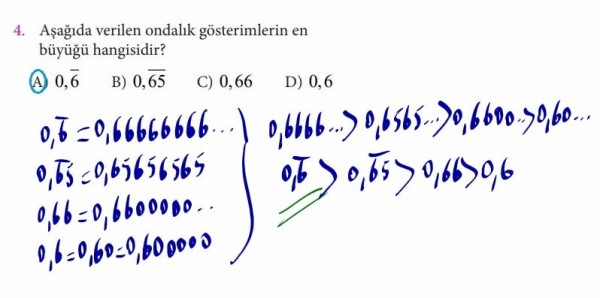 4. Aşağıda verilen ondalık gösterimlerin en
büyüğü hangisidir?
A) 0,6̅ B) 0,6̅5̅ C) 0,66 D) 0,6
0,6̅ = 0,66666666... 0,6666...> 0,6565...>0,6600..>0,60...
0,6̅5̅ = 0,65656565 0,6̅ > 0,6̅5̅ > 0,66 > 0,6
0,66 = 0,6600000..
0,6 = 0,60 = 0,600000